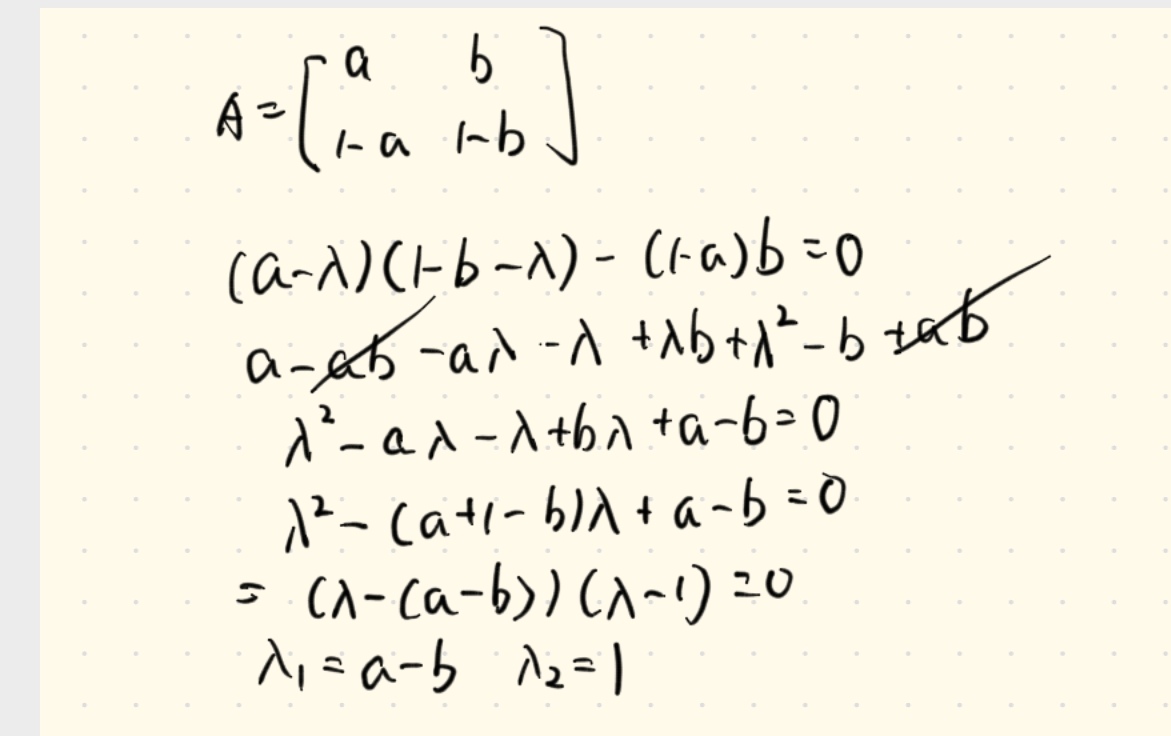 A = [ a b
1-a 1-b ]
(a-λ)(1-b-λ) - (1-a)b = 0
a - ab - aλ - λ + λb + λ² - b + ab
λ² - aλ - λ + bλ + a - b = 0
λ² - (a+1-b)λ + a - b = 0
= (λ-(a-b))(λ-1) = 0
λ₁ = a-b λ₂ = 1